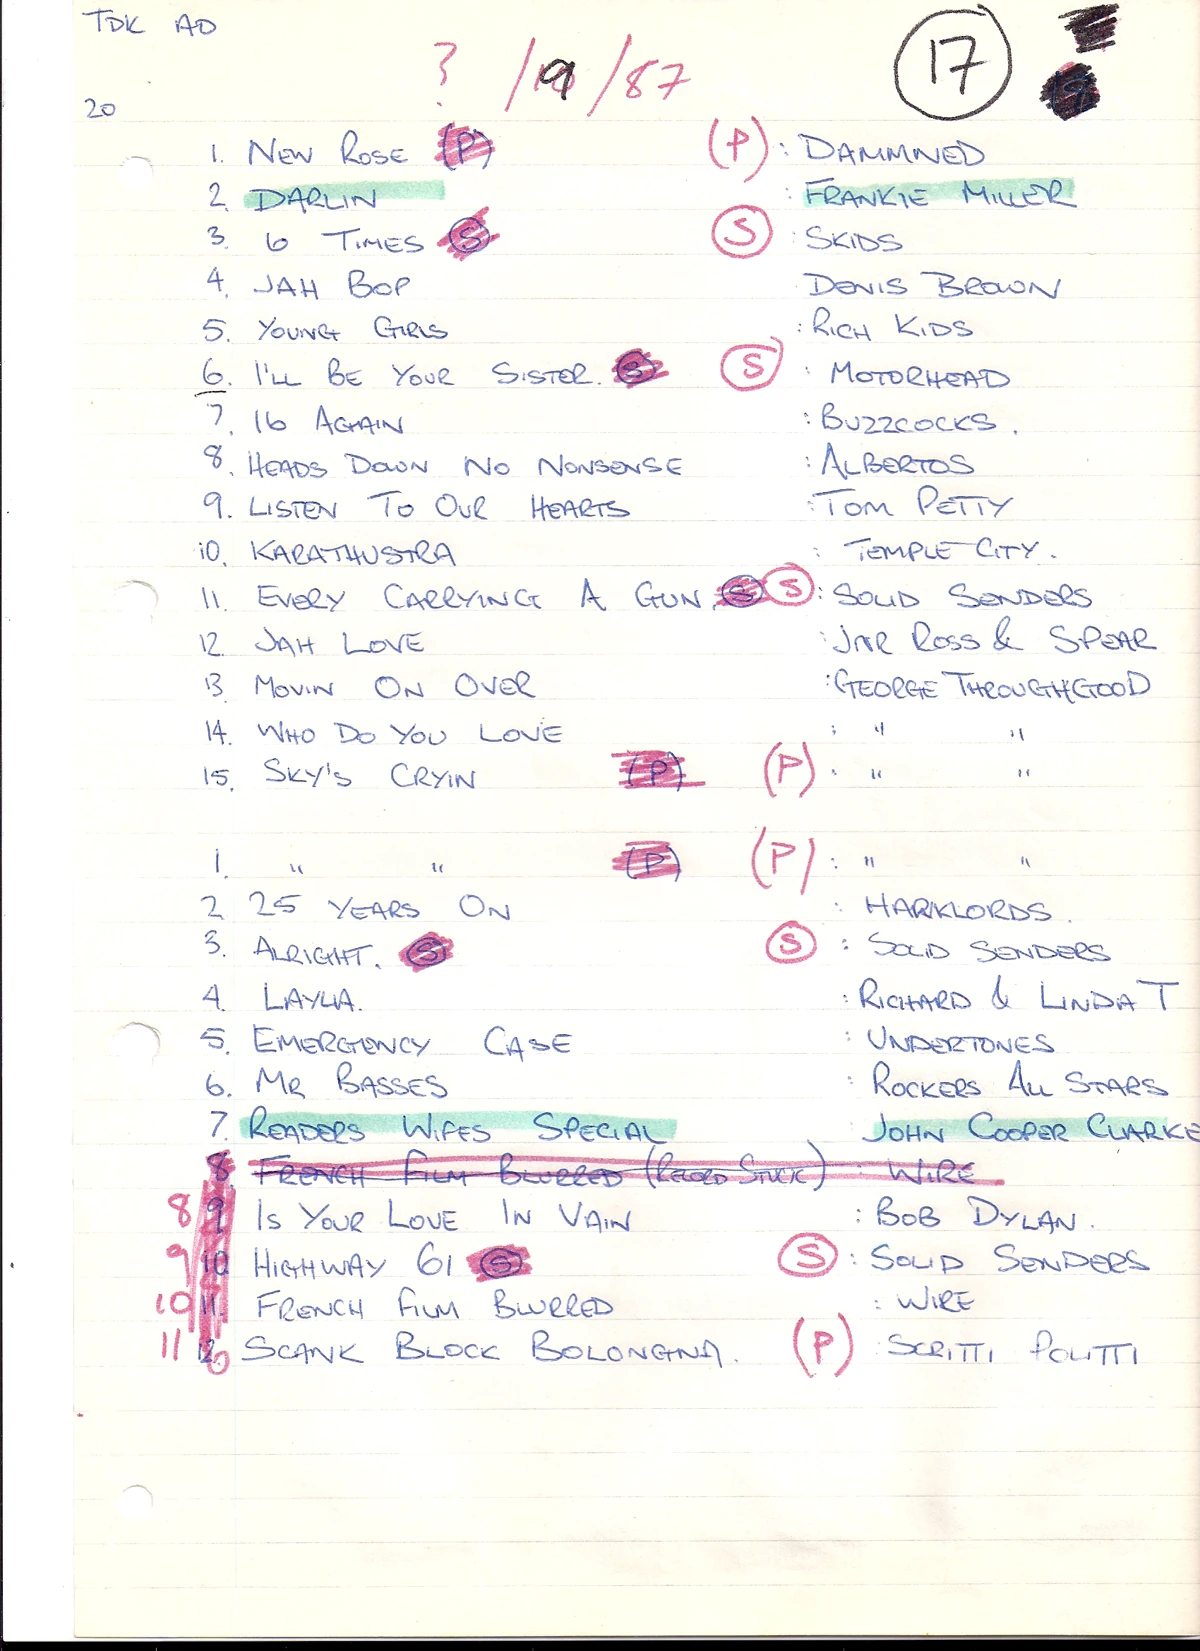 TDK AD
? /9/87
17
20
1. NEW ROSE (P) (P) : DAMMNED
2. DARLIN : FRANKIE MILLER
3. 6 TIMES (S) (S) : SKIDS
4. JAH BOP DENIS BROWN
5. YOUNG GIRLS : RICH KIDS
6. I'LL BE YOUR SISTER. (S) (S) : MOTORHEAD
7. 16 AGAIN : BUZZCOCKS.
8. HEADS DOWN NO NONSENSE : ALBERTOS
9. LISTEN TO OUR HEARTS : TOM PETTY
10. KARATHUSTRA : TEMPLE CITY.
11. EVERY CARRYING A GUN. (S) (S) : SOLID SENDERS
12. JAH LOVE : JNR ROSS & SPEAR
13. MOVIN ON OVER : GEORGE THROUGHGOOD
14. WHO DO YOU LOVE : " "
15. SKY'S CRYIN (P) (P) : " "
1. " " (P) (P) : " "
2 25 YEARS ON : HARKLORDS.
3. ALRIGHT. (S) (S) : SOLID SENDERS
4. LAYLIA. : RICHARD & LINDA T
5. EMERGENCY CASE : UNDERTONES
6. MR BASSES : ROCKERS ALL STARS
7. READERS WIFES SPECIAL JOHN COOPER CLARKE
8. FRENCH FILM BLURRED (RECORD STUCK) : WIRE
8 9 IS YOUR LOVE IN VAIN : BOB DYLAN.
9 10 HIGHWAY 61 (S) (S) : SOLID SENDERS
10 11. FRENCH FILM BLURRED : WIRE
11 12. SCANK BLOCK BOLONGNA. (P) : SCRITTI POLITTI